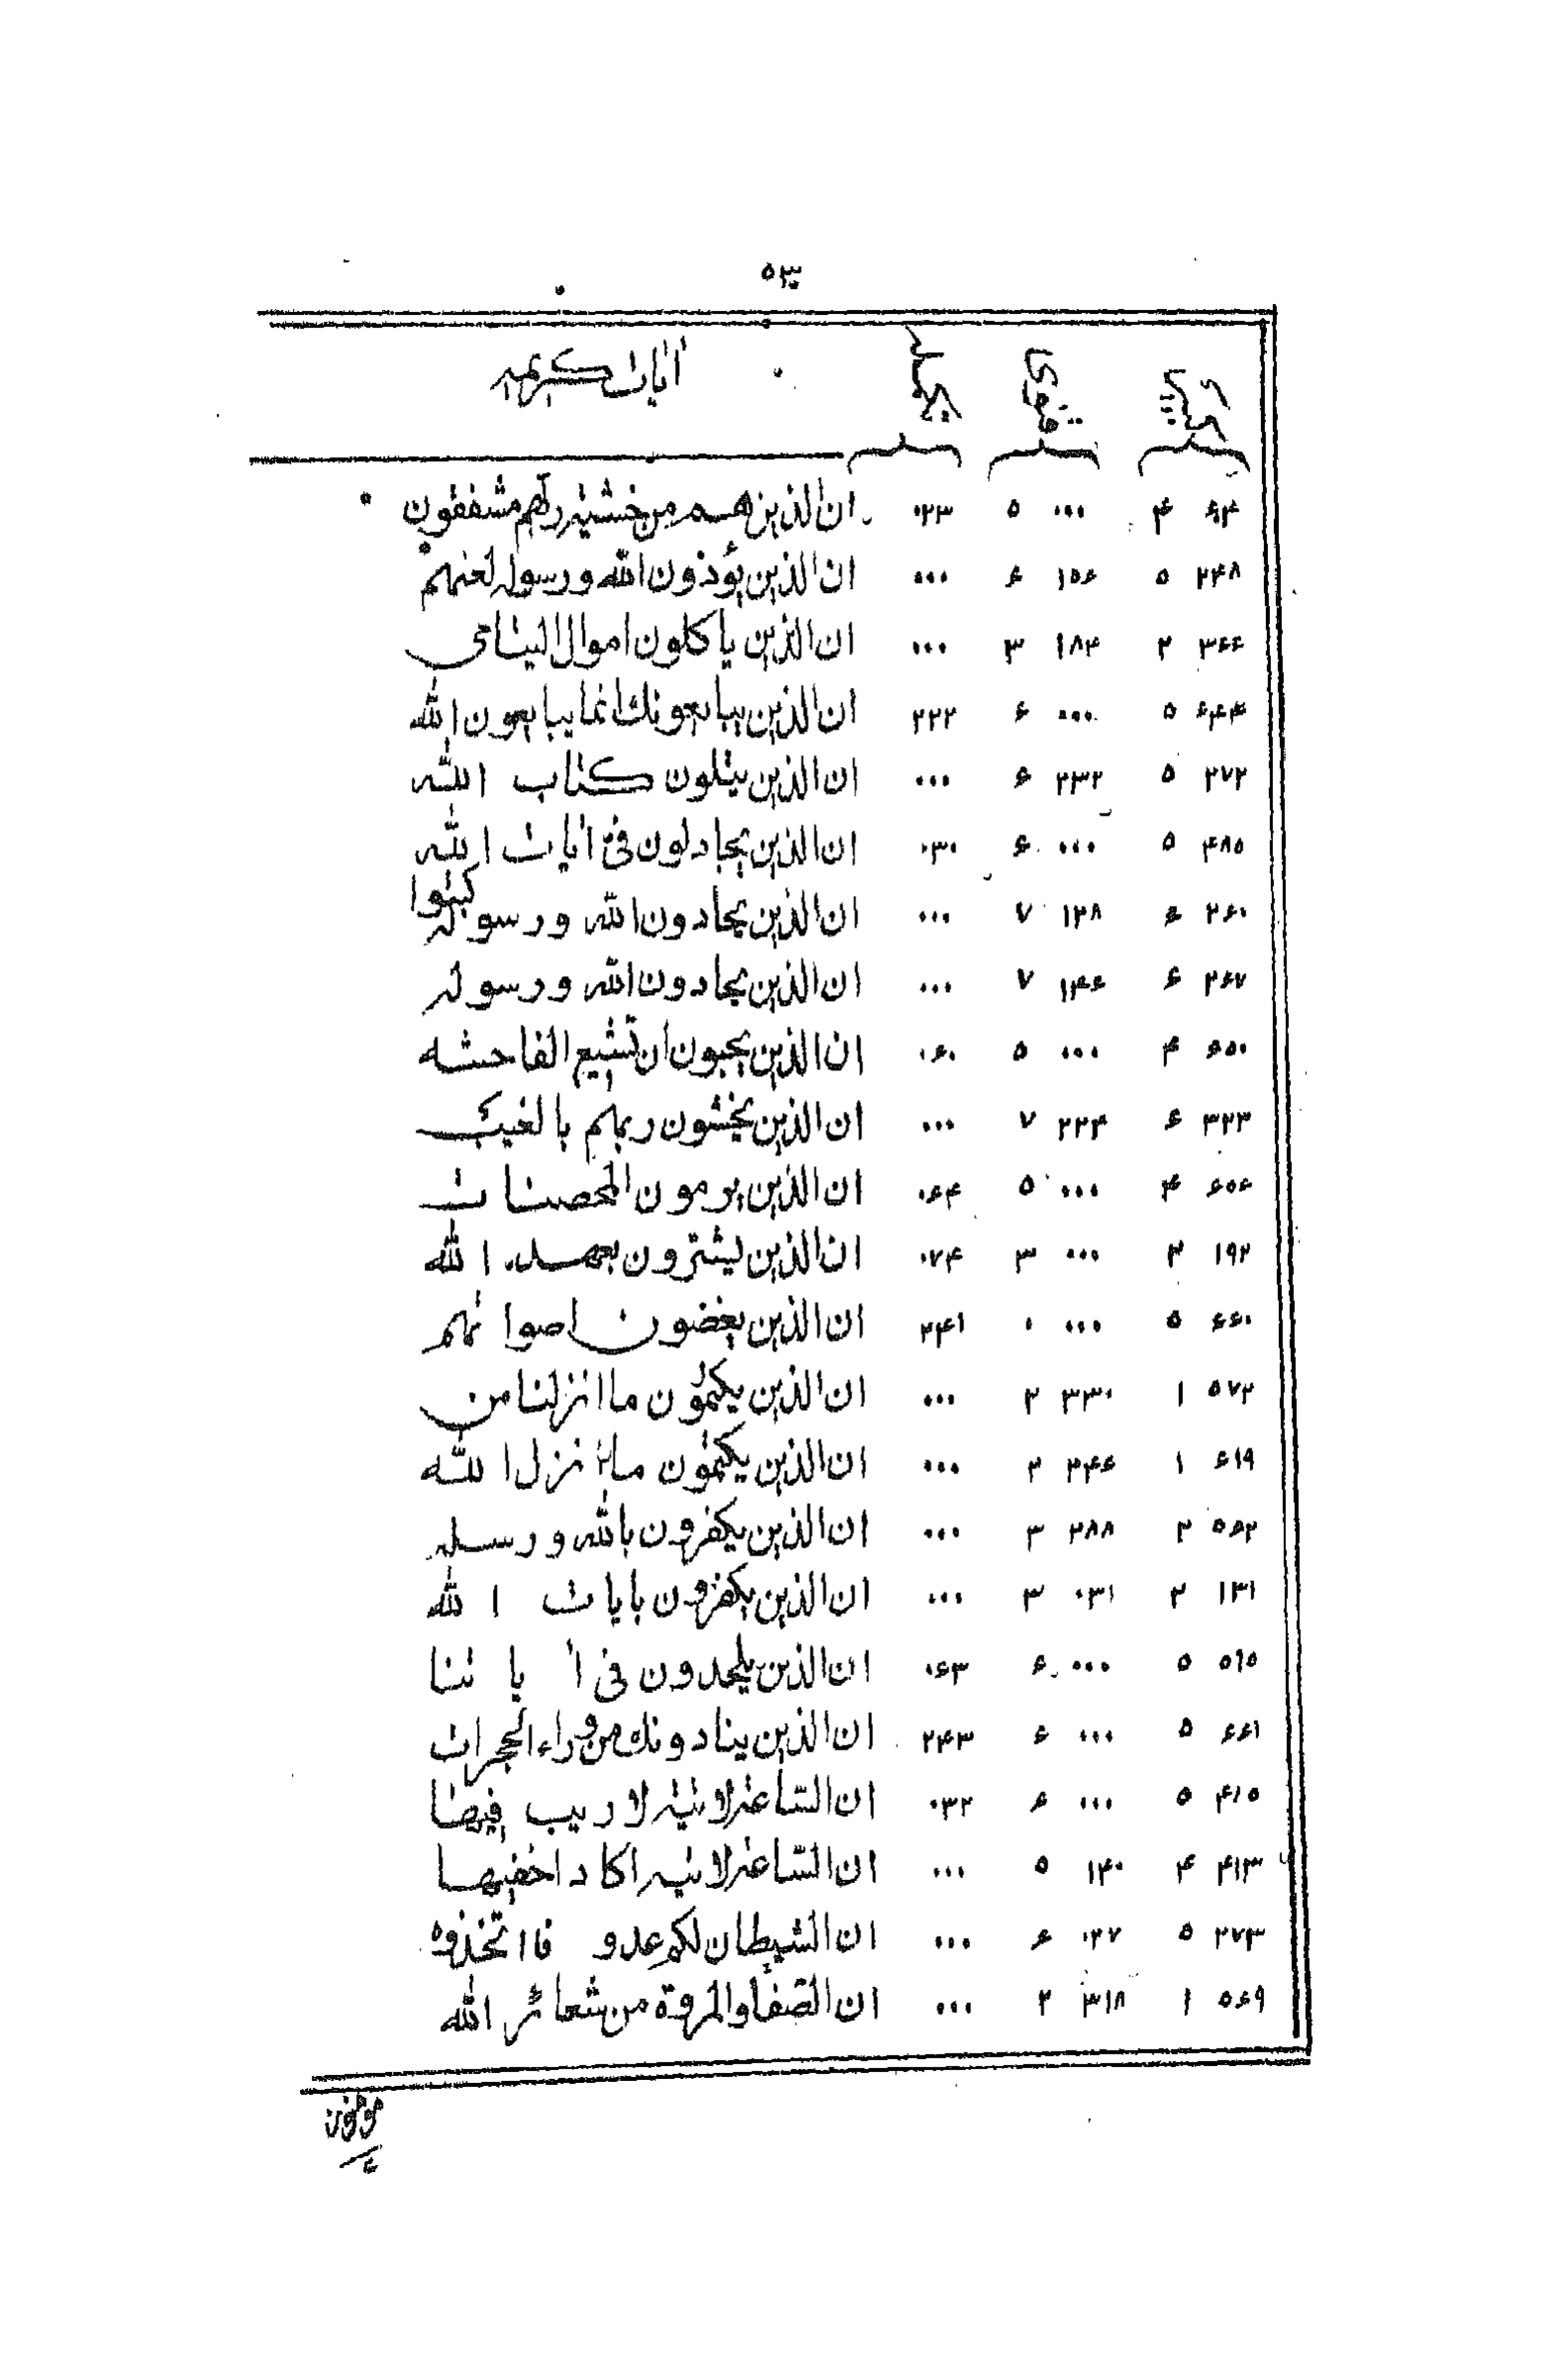 ۵۳
اٰیات کریمه
۰۶۴ ۴ ۰۰۰ ۵ ۰۲۳ ان الذین هم من خشیة ربهم مشفقون
۲۴۸ ۵ ۱۵۶ ۶ ۰۰۰ ان الذین یؤذون الله و رسوله لعنهم
۳۶۶ ۲ ۱۸۴ ۳ ۰۰۰ ان الذین یاکلون اموال الیتامی
۶۴۴ ۵ ۰۰۰ ۶ ۲۲۲ ان الذین یبایعونك انما یبایعون الله
۲۷۲ ۵ ۲۳۲ ۶ ۰۰۰ ان الذین یتلون کتاب الله
۴۸۵ ۵ ۰۰۰ ۶ ۰۳۰ ان الذین یجادلون فی اٰیات الله
۲۶۰ ۶ ۱۲۸ ۷ ۰۰۰ ان الذین یحادون الله و رسوله کبتوا
۲۶۷ ۶ ۱۴۶ ۷ ۰۰۰ ان الذین یحادون الله و رسوله
۶۵۰ ۴ ۰۰۰ ۵ ۰۶۰ ان الذین یحبون ان تشیع الفاحشه
۳۲۳ ۶ ۲۲۴ ۷ ۰۰۰ ان الذین یخشون ربهم بالغیب
۶۵۶ ۴ ۰۰۰ ۵ ۰۶۴ ان الذین یرمون المحصنات
۱۹۲ ۲ ۰۰۰ ۳ ۰۷۴ ان الذین یشترون بعهد الله
۶۶۰ ۵ ۰۰۰ ۰ ۲۴۱ ان الذین یغضون اصواتهم
۵۷۲ ۱ ۳۳۰ ۲ ۰۰۰ ان الذین یکتمون ما انزلنا من
۶۱۹ ۱ ۳۴۶ ۲ ۰۰۰ ان الذین یکتمون ما انزل الله
۵۶۲ ۲ ۲۸۸ ۳ ۰۰۰ ان الذین یکفرون بالله و رسله
۱۳۱ ۲ ۰۳۱ ۳ ۰۰۰ ان الذین یکفرون بایات الله
۵۱۵ ۵ ۰۰۰ ۶ ۰۶۳ ان الذین یلحدون فی اٰیاتنا
۶۶۱ ۵ ۰۰۰ ۶ ۲۴۳ ان الذین ینادونك من وراء الحجرات
۴۱۵ ۵ ۰۰۰ ۶ ۰۳۲ ان الساعة لاتیة لاریب فیها
۴۱۳ ۴ ۱۴۰ ۵ ۰۰۰ ان الساعة لاتیه اکاد اخفیها
۲۷۳ ۵ ۰۲۷ ۶ ۰۰۰ ان الشیطان لکم عدو فااتخذوه
۵۶۹ ۱ ۳۱۸ ۲ ۰۰۰ ان الصفا و المروة من شعائر الله